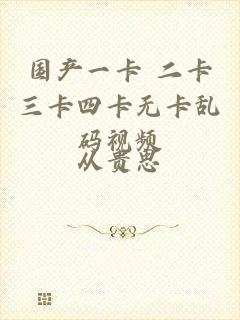 国产一卡 二卡
三卡四卡无卡乱
码视频
从贵思